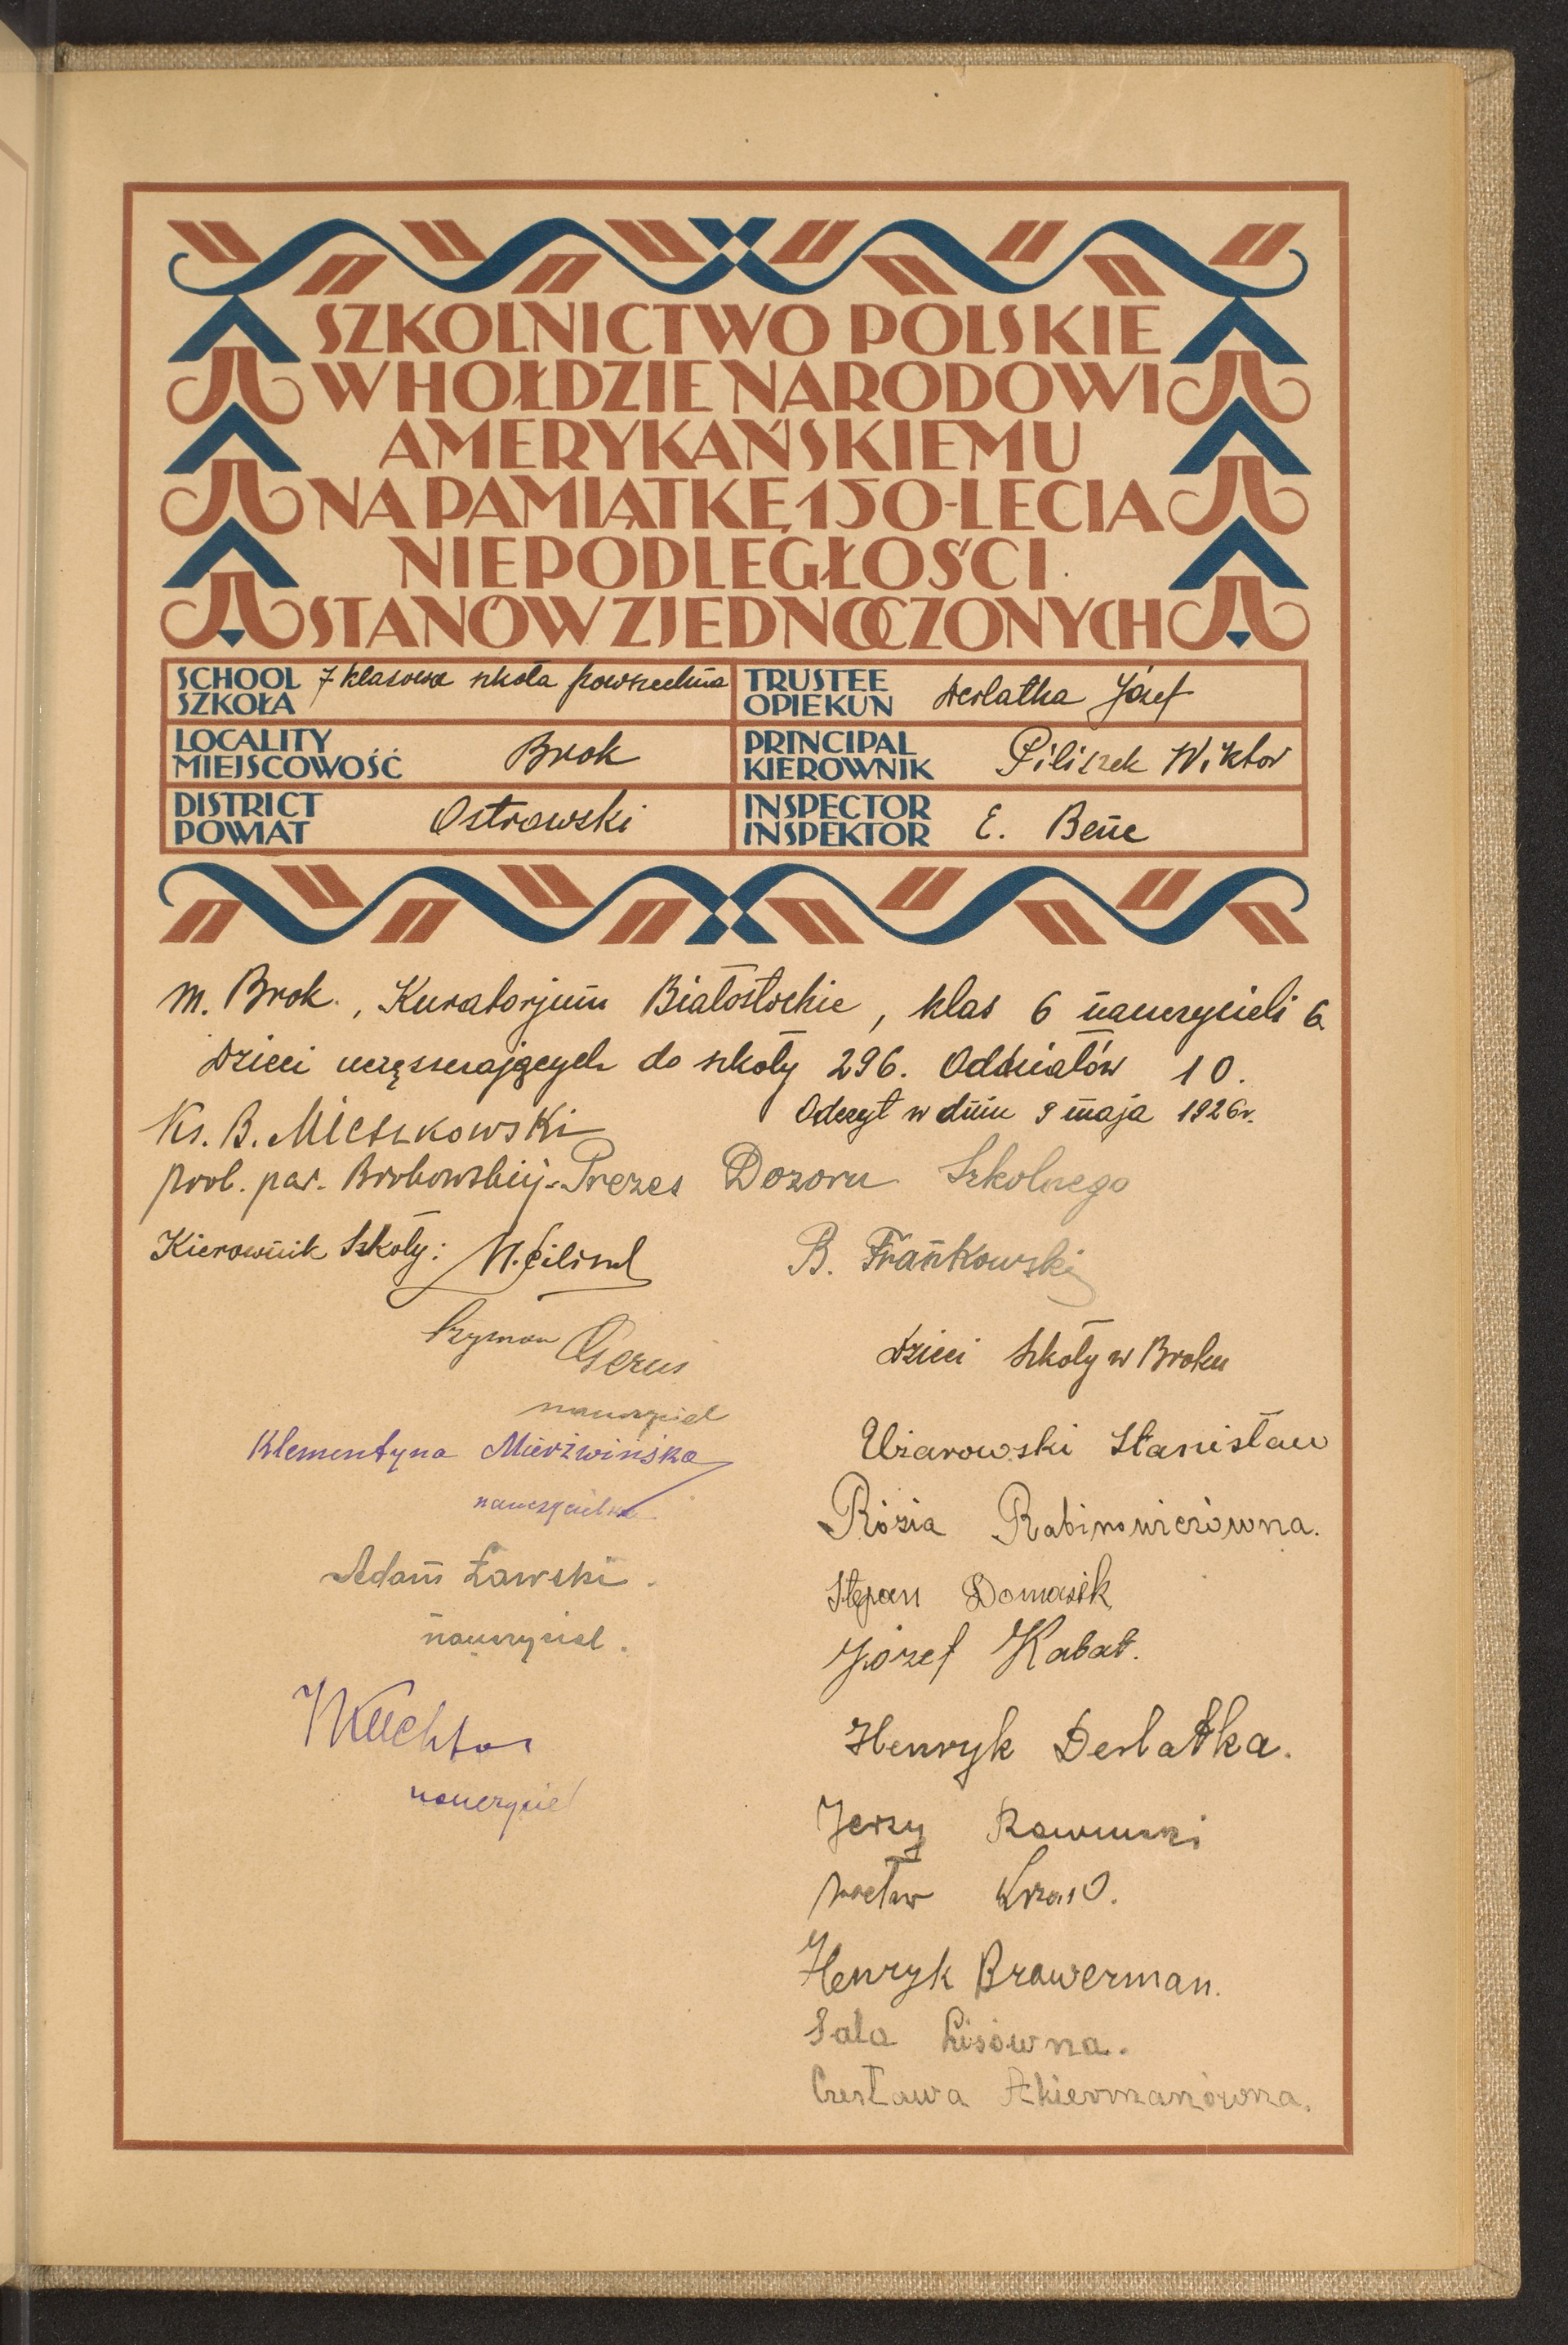 SZKOLNICTWO POLSKIE
W HOŁDZIE NARODOWI
AMERYKAŃSKIEMU
NA PAMIĄTKĘ 150-LECIA
NIEPODLEGŁOŚCI
STANÓW ZJEDNOCZONYCH
SCHOOL
SZKOŁA
7 klasowa szkoła powszechna
TRUSTEE
OPIEKUN
Deslatka Józef
LOCALITY
MIEJSCOWOŚĆ
Brok
PRINCIPAL
KIEROWNIK
Piliszek Wiktor
DISTRICT
POWIAT
Ostrowski
INSPECTOR
INSPEKTOR
E. Bene
m. Brok., Kuratorjum Białostockie, klas 6 nauczycieli 6
Dzieci uczęszczających do szkoły 296. Oddziałów 10.
Odczyt w dniu 9 maja 1926r.
Ks. B. Mieszkowski
prob. par. Brokowskiej - Prezes Dozoru Szkolnego
Kierownik Szkoły:
B. Frankowski
Szymon Gerus
nauczyciel
Klementyna Mierzwińska
nauczycielka.
Adam Ławski.
nauczyciel.
nauczyciel
Dzieci Szkoły w Broku
Użarowski Stanisław
Rózia Rabinowiczówna.
Stepan Domasik
Józef Kabat.
Henryk Deslatka.
Jerzy
Henryk Brawerman.
Sala Lisówna.
Czesława Akiermanówna.